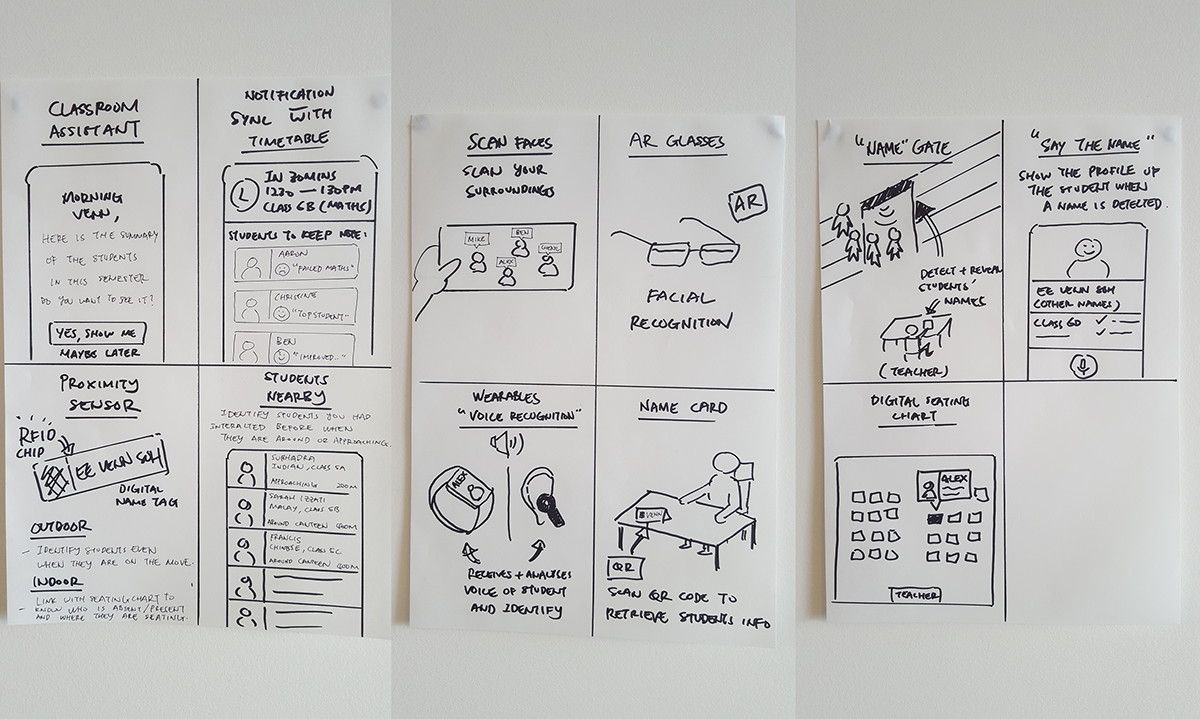 CLASSROOM
ASSISTANT
MORNING
VENN,
HERE IS THE SUMMARY
OF THE STUDENTS
IN THIS SEMESTER
DO YOU WANT TO SEE IT?
YES, SHOW ME
MAYBE LATER
NOTIFICATION
SYNC WITH
TIMETABLE
IN 30MINS
1230 — 130PM
CLASS 6B (MATHS)
STUDENTS TO KEEP NOTE:
AARON
"FAILED MATHS"
CHRISTINE
"TOP STUDENT"
BEN
"IMPROVED.."
PROXIMITY
SENSOR
RFID
CHIP
EE VENN SOH
DIGITAL
NAME TAG
OUTDOOR
- IDENTIFY STUDENTS EVEN
WHEN THEY ARE ON THE MOVE.
INDOOR
- LINK WITH SEATING CHART TO
KNOW WHO IS ABSENT/PRESENT
AND WHERE THEY ARE SEATING.
STUDENTS
NEARBY
IDENTIFY STUDENTS YOU HAD
INTERACTED BEFORE WHEN
THEY ARE AROUND OR APPROACHING.
SUBHADRA
INDIAN, CLASS 5A
APPROACHING 200M
SARAH IZZATI
MALAY, CLASS 5B
AROUND CANTEEN 400M
FRANCIS
CHINESE, CLASS 5C
AROUND CANTEEN 400M
SCAN FACES
SCAN YOUR
SURROUNDINGS
MIKE
BEN
ALEX
CHERYL
AR GLASSES
AR
FACIAL
RECOGNITION
WEARABLES
"VOICE RECOGNITION"
ALEX
RECEIVES + ANALYSES
VOICE OF STUDENT
AND IDENTIFY
NAME CARD
VENN
QR
SCAN QR CODE TO
RETRIEVE STUDENTS INFO
"NAME" GATE
DETECT + REVEAL
STUDENTS'
NAMES
(TEACHER)
"SAY THE NAME"
SHOW THE PROFILE OF
THE STUDENT WHEN
A NAME IS DETECTED.
EE VENN SOH
(OTHER NAMES)
CLASS 6D
DIGITAL SEATING
CHART
ALEX
TEACHER